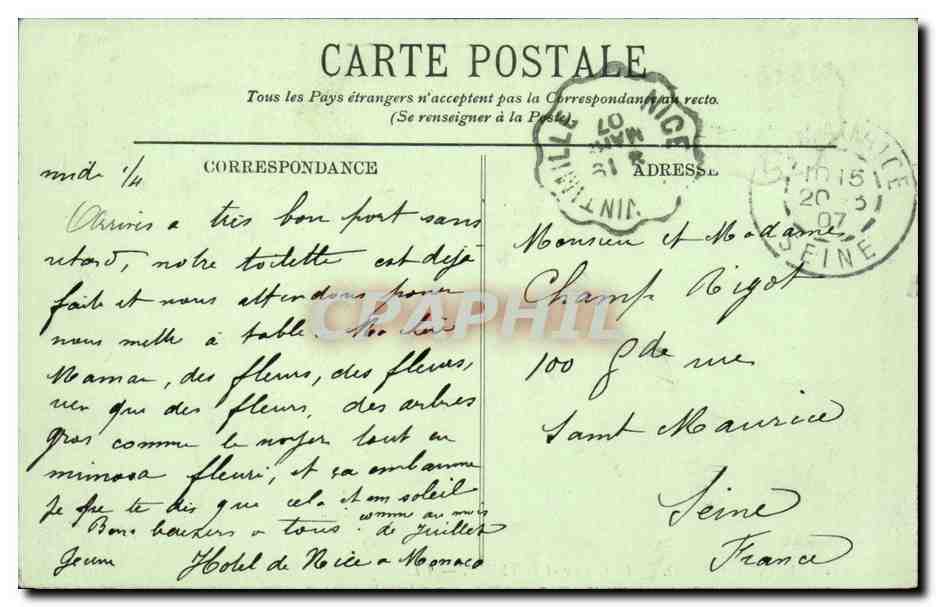 CARTE POSTALE
Tous les Pays étrangers n'acceptent pas la Correspondance au recto.
(Se renseigner à la Poste)
CORRESPONDANCE
midi 1/4
Arrivés a très bon port sans
retard, notre toilette est déjà
faite et nous attendons pour
nous mettre à table. Ma
Maman, des fleurs, des fleurs,
rien que des fleurs, des arbres
gros comme le noyer tout en
mimosa fleuri, et ça embaume
Je ne te dis que cela et un soleil
comme au mois
Bons baisers a tous de Juillet
Hotel de Nice a Monaco
ADRESSE
Monsieur et Madame
Champ Rigot
100 Gde rue
Saint Maurice
Seine
France
NICE
VINTIMILLE
07
MARS
19
MAURICE
10 15
20 -3
07
SEINE
CPAPHIL